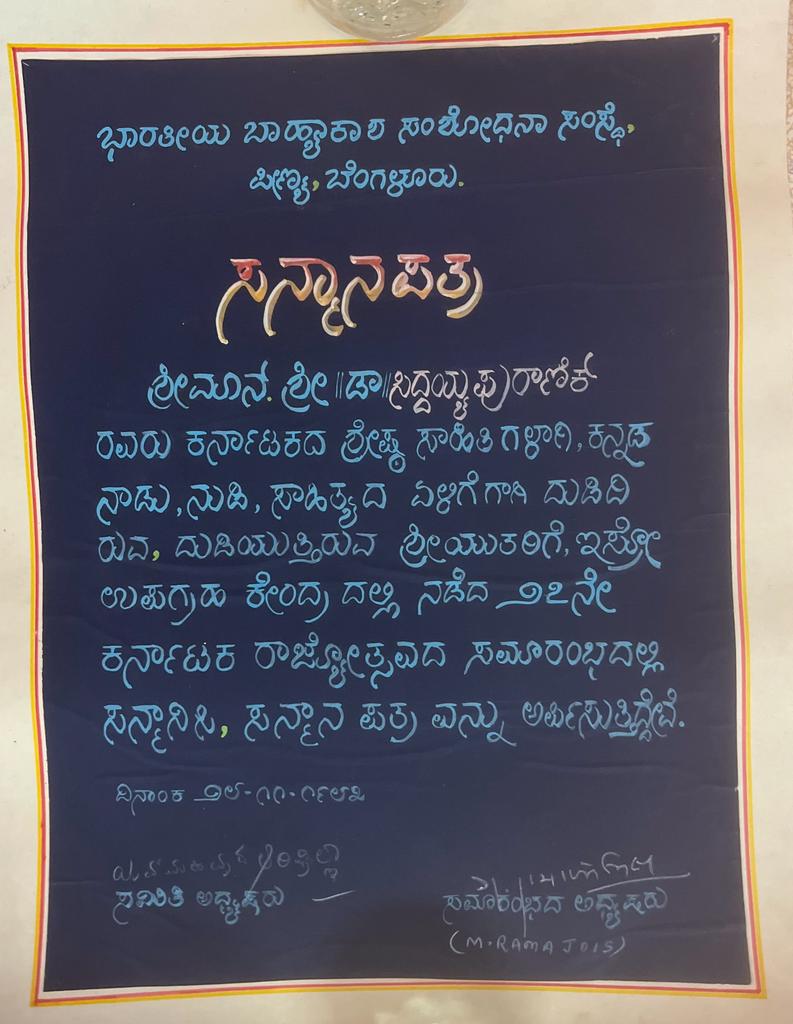 ಭಾರತೀಯ ಬಾಹ್ಯಾಕಾಶ ಸಂಶೋಧನಾ ಸಂಸ್ಥೆ,
ಪೀಣ್ಯ, ಬೆಂಗಳೂರು.
ಸನ್ಮಾನ ಪತ್ರ
ಶ್ರೀಮಾನ್. ಶ್ರೀ ||ಡಾ|| ಸಿದ್ದಯ್ಯ ಪುರಾಣಿಕ್
ರವರು ಕರ್ನಾಟಕದ ಶ್ರೇಷ್ಠ ಸಾಹಿತಿಗಳಾಗಿ, ಕನ್ನಡ
ನಾಡು, ನುಡಿ, ಸಾಹಿತ್ಯದ ಏಳಿಗೆಗಾಗಿ ದುಡಿದಿ
ರುವ, ದುಡಿಯುತ್ತಿರುವ ಶ್ರೀಯುತರಿಗೆ, ಇಸ್ರೋ
ಉಪಗ್ರಹ ಕೇಂದ್ರದಲ್ಲಿ ನಡೆದ ೨೭ನೇ
ಕರ್ನಾಟಕ ರಾಜ್ಯೋತ್ಸವದ ಸಮಾರಂಭದಲ್ಲಿ
ಸನ್ಮಾನಿಸಿ, ಸನ್ಮಾನ ಪತ್ರವನ್ನು ಅರ್ಪಿಸುತ್ತಿದ್ದೇವೆ.
ದಿನಾಂಕ
ಸಮಿತಿ ಅಧ್ಯಕ್ಷರು
ಸಮಾರಂಭದ ಅಧ್ಯಕ್ಷರು
(M. RAMA JOIS)